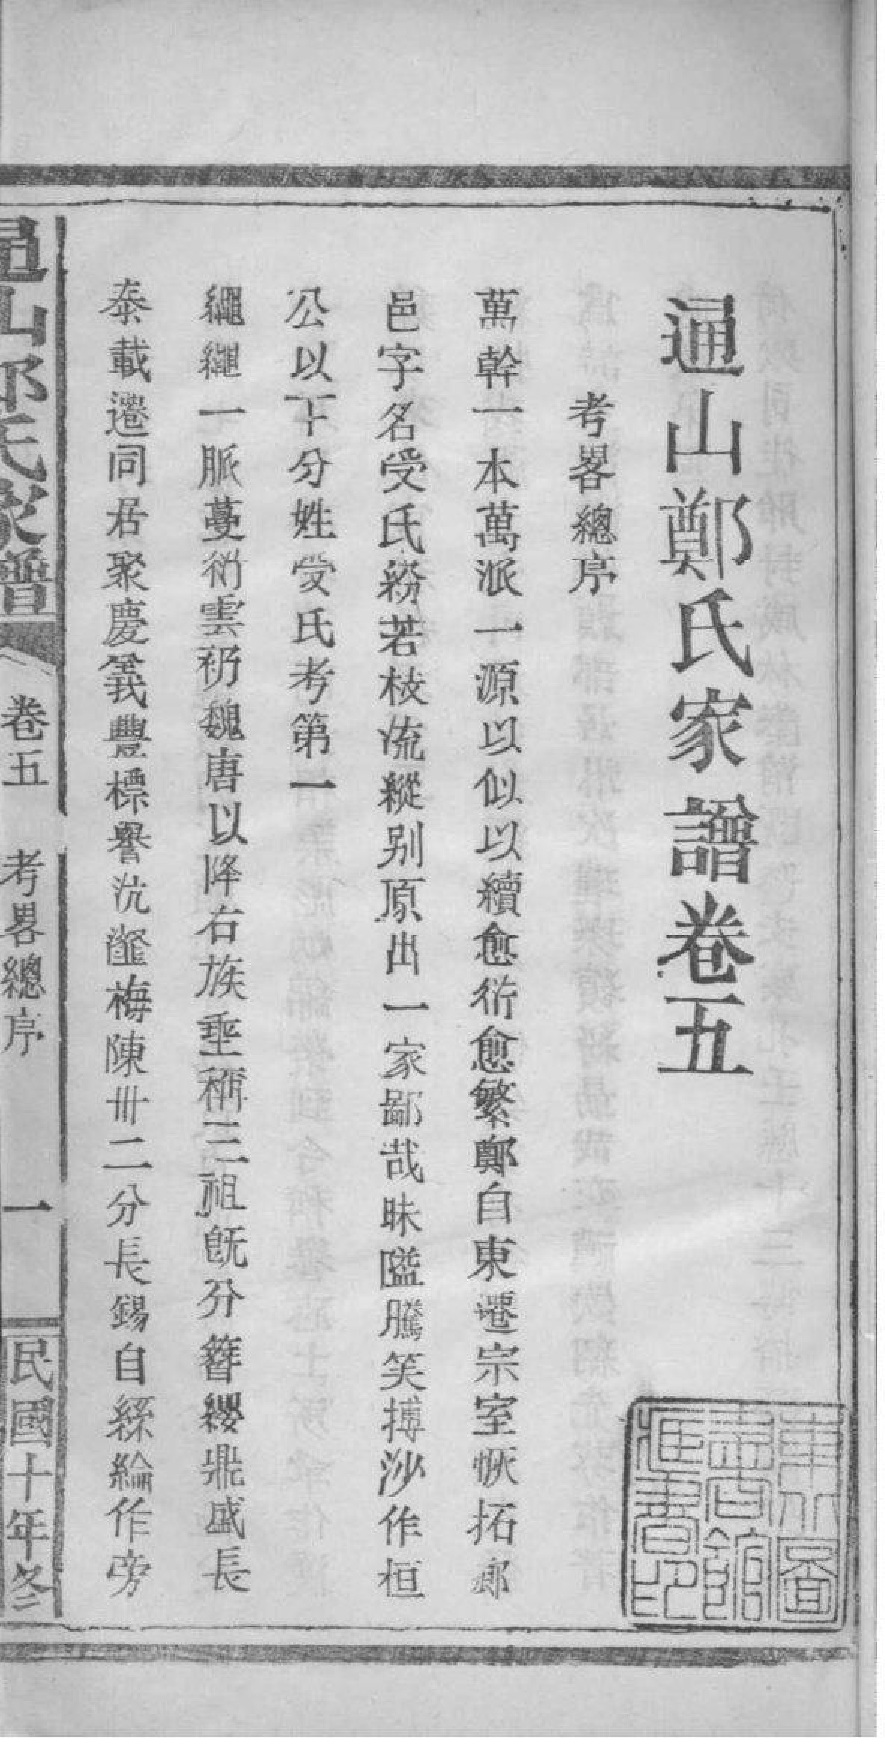 通山鄭氏家譜卷五
考畧總序
萬幹一本萬派一源以似以續愈衍愈繁鄭自東遷宗室恢拓郷
邑字名受氏紛若枝流縱别原出一家鄙哉昧隘騰笑搏沙作桓
公以下分姓受氏考第一
繩繩一脈蔓衍雲礽魏唐以降右族垂稱三祖旣分簪纓鼎盛長
泰載遷同居聚慶義豐標譽沆瀣梅陳卅二分長錫自絲綸作旁
通山鄭氏家譜
卷五
考畧總序
一
民國十年修